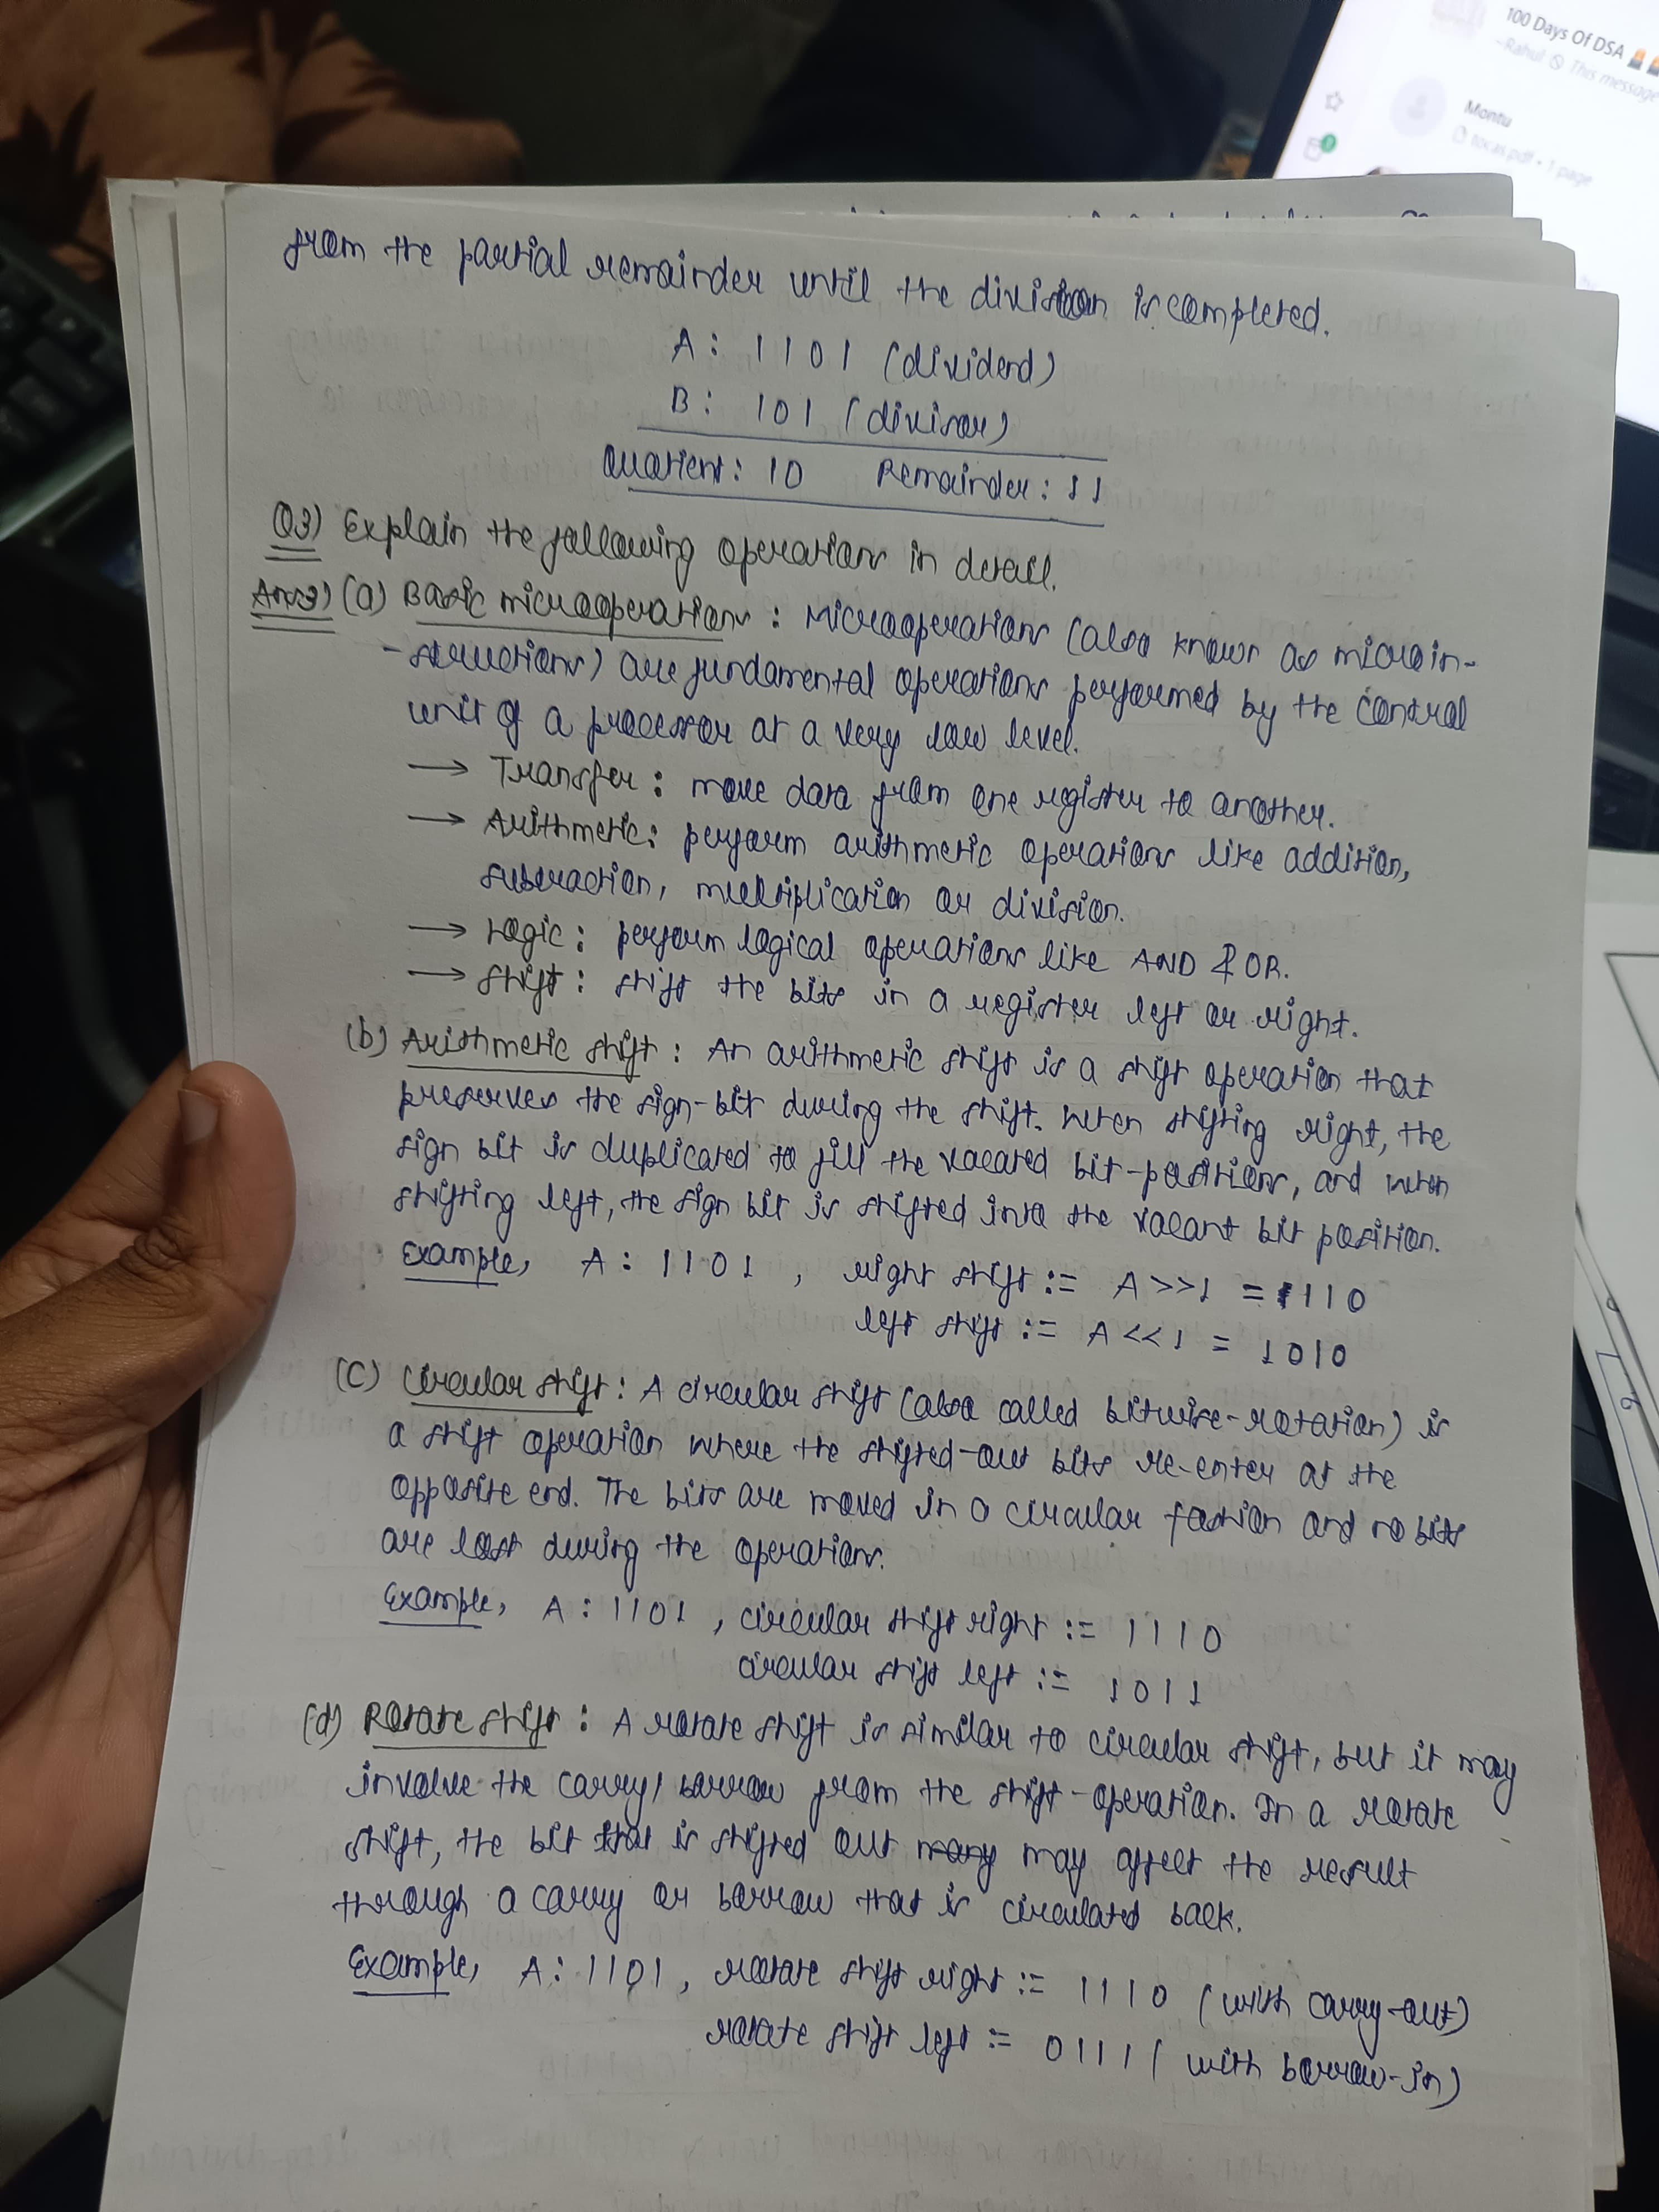 100 Days Of DSA
~Rahul This message
Montu
tocas.pdf • 1 page
from the partial remainder until the division is completed.
A : 1101 (dividend)
B : 101 (divisor)
Quotient : 10 Remainder : 11
Q3) Explain the following operations in detail.
Ans3) (a) Basic microoperations : Microoperations (also known as microin-
-structions) are fundamental operations performed by the control
unit of a processor at a very low level.
→ Transfer : move data from one register to another.
→ Arithmetic : perform arithmetic operations like addition,
subtraction, multiplication or division.
→ Logic : perform logical operations like AND & OR.
→ Shift : shift the bits in a register left or right.
(b) Arithmetic shift : An arithmetic shift is a shift operation that
preserves the sign-bit during the shift. When shifting right, the
sign bit is duplicated to fill the vacated bit-positions, and when
shifting left, the sign bit is shifted into the vacant bit position.
Example, A : 1101 , right shift := A >> 1 = 1110
left shift := A << 1 = 1010
(C) Circular shift : A circular shift (also called bitwise-rotation) is
a shift operation where the shifted-out bits re-enter at the
opposite end. The bits are moved in a circular fashion and no bits
are lost during the operations.
Example, A : 1101 , circular shift right := 1110
circular shift left := 1011
(d) Rotate shift : A rotate shift is similar to circular shift, but it may
involve the carry/borrow from the shift-operation. In a rotate
shift, the bit that is shifted out may affect the result
through a carry or borrow that is circulated back.
Example, A : 1101 , rotate shift right := 1110 (with carry-out)
rotate shift left := 0111 (with borrow-in)